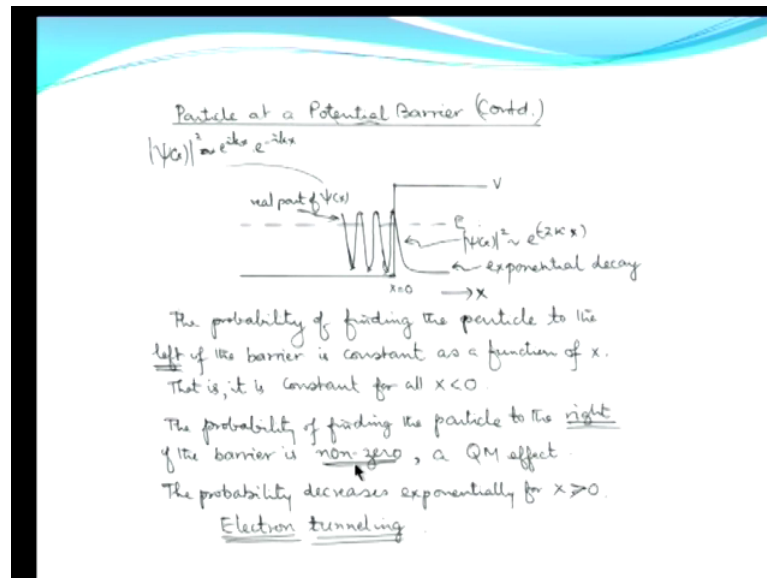 Particle at a Potential Barrier (Contd.)
|ψ(x)|² ~ e^{ikx} . e^{-ikx}
real part of ψ(x)
V
E
|ψ(x)|² ~ e^{(-2κx)}
exponential decay
x=0 → x
The probability of finding the particle to the
left of the barrier is constant as a function of x.
That is, it is constant for all x<0.
The probability of finding the particle to the right
of the barrier is non-zero, a QM effect.
The probability decreases exponentially for x≥0.
Electron tunneling.